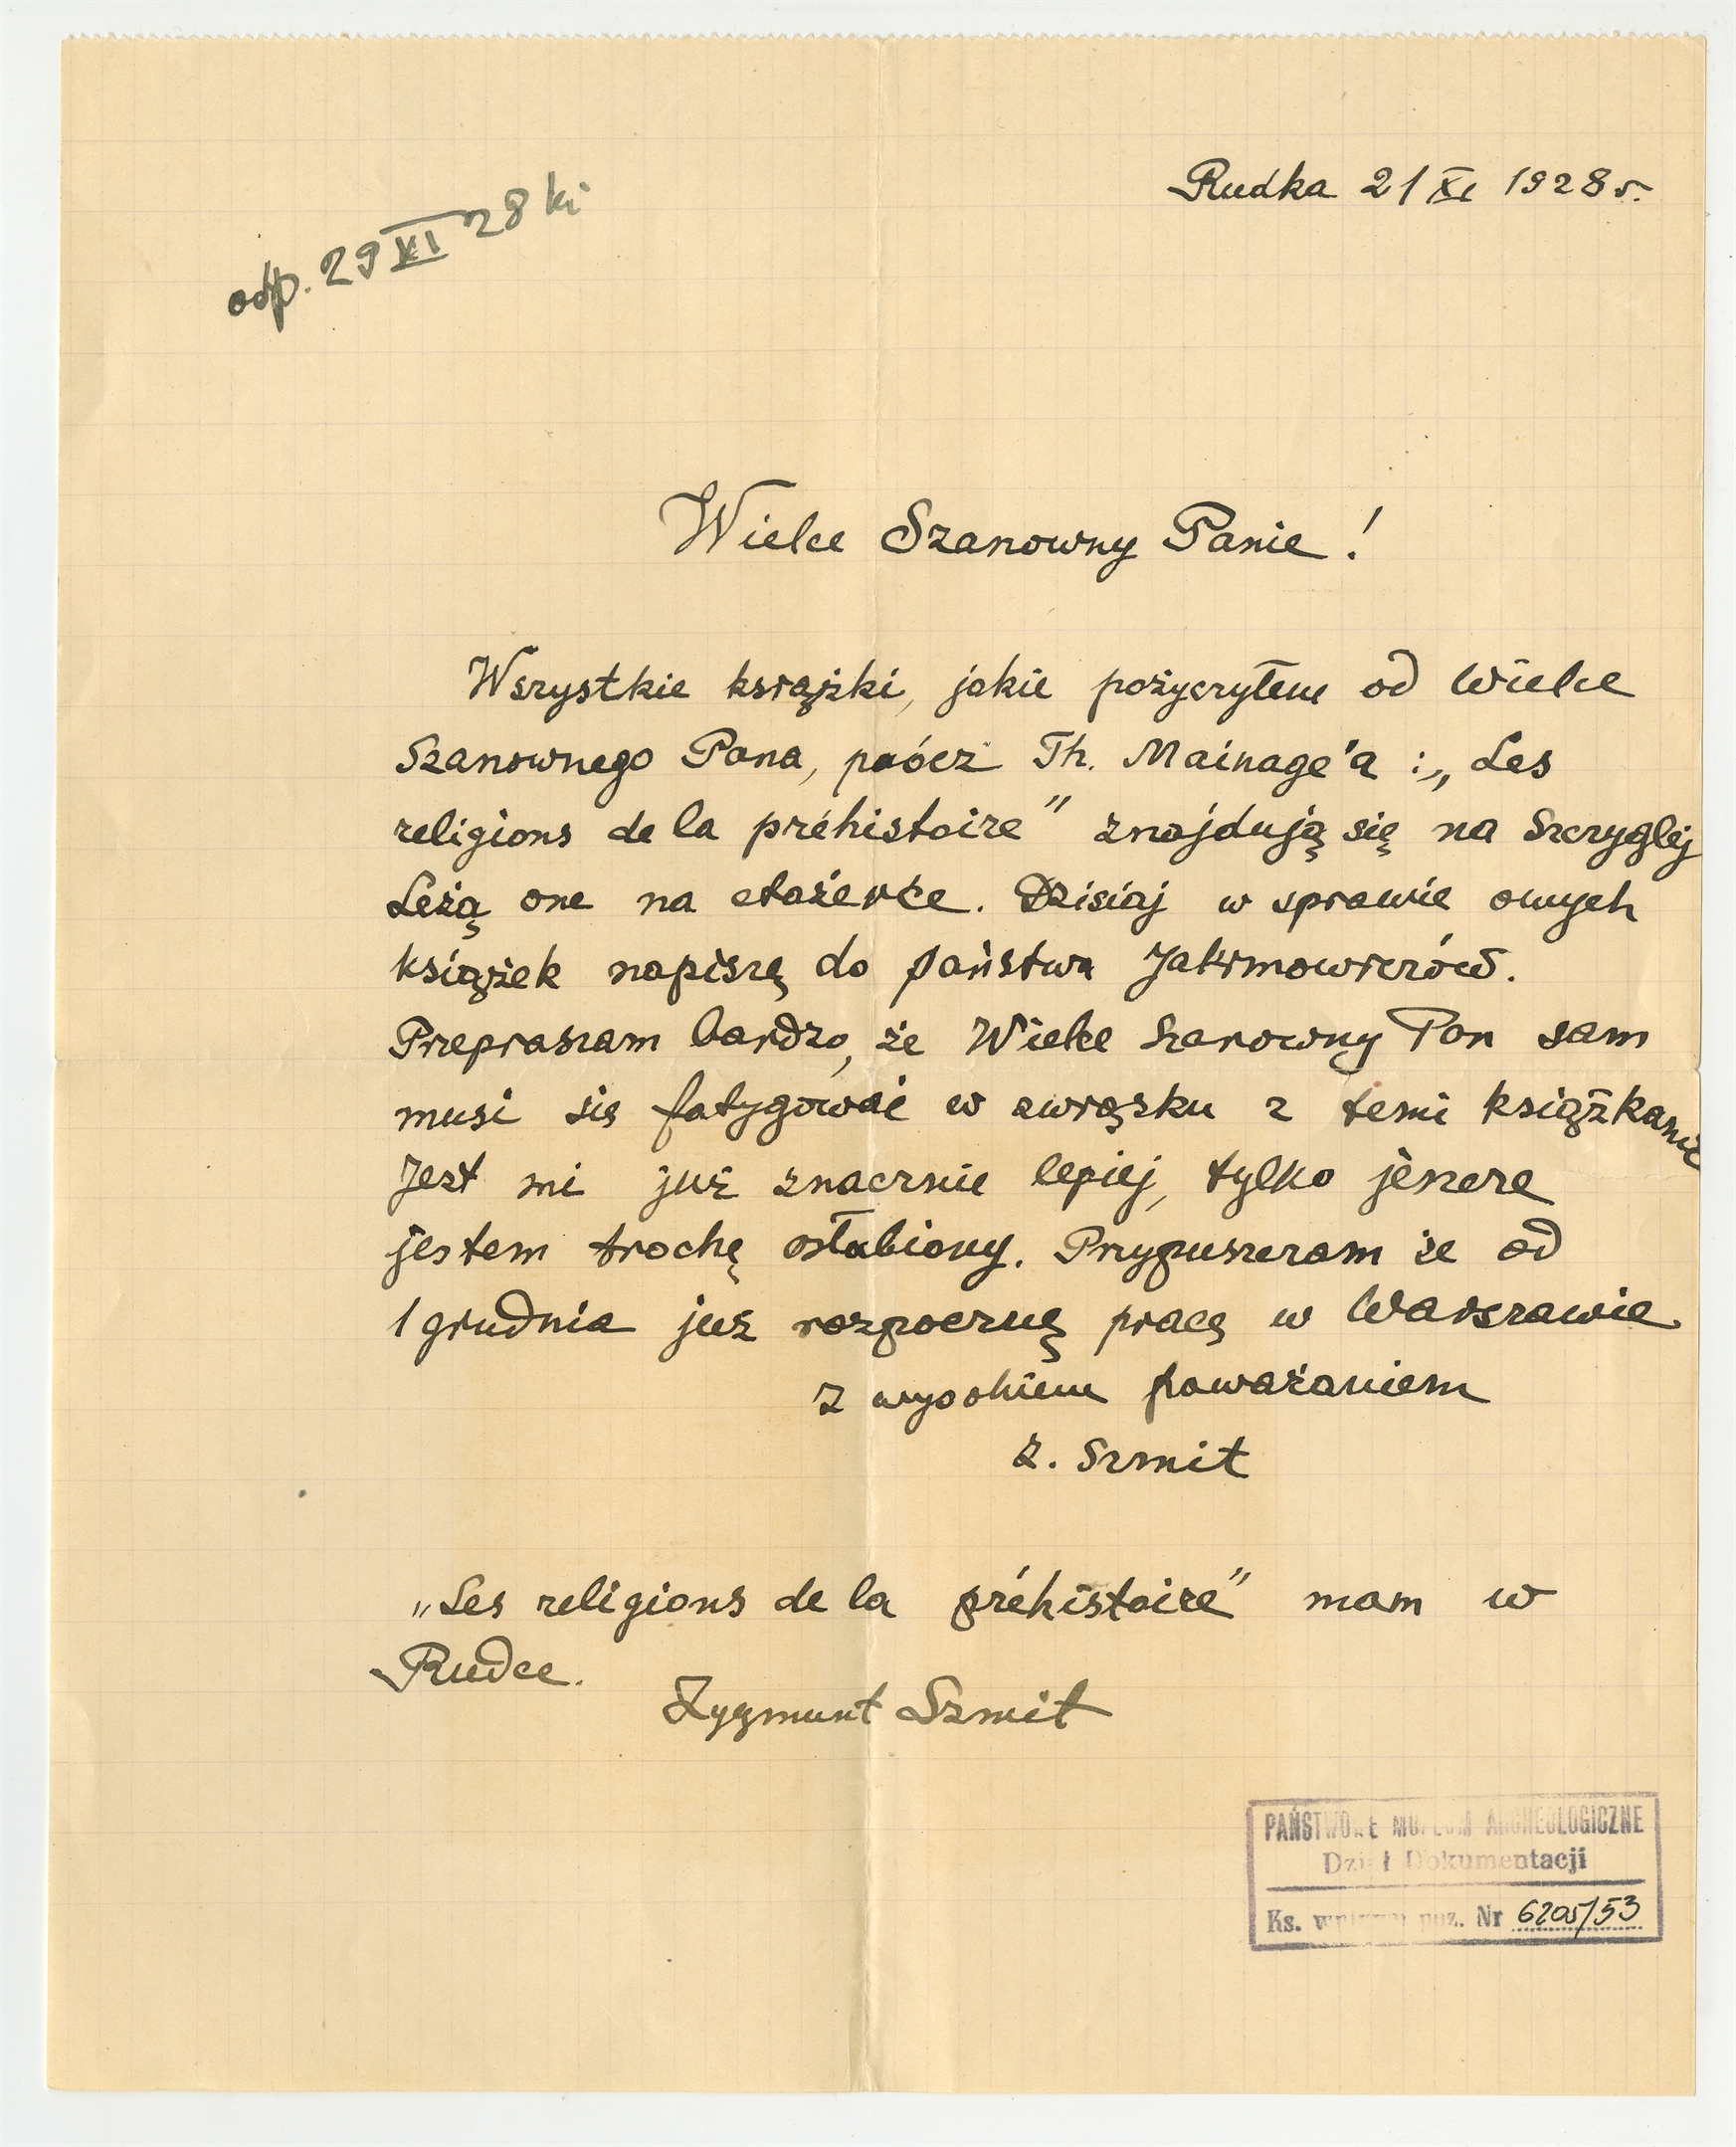 Rudka 21 XI 1928 r.
odp. 29 XI 28 ki
Wielce Szanowny Panie!
Wszystkie książki, jakie pożyczyłem od Wielce
Szanownego Pana, prócz Th. Mainage'a : „Les
religions de la préhistoire" znajdują się na Szczyglej
Leżą one na etażerce. Dzisiaj w sprawie owych
książek napiszę do państwa Jakimowiczów.
Przepraszam bardzo, że Wielce Szanowny Pan sam
musi się fatygować w związku z temi książkami
Jest mi już znacznie lepiej, tylko jeszcze
jestem trochę osłabiony. Przypuszczam że od
1 grudnia już rozpocznę pracę w Warszawie
Z wysokiem poważaniem
Z. Szmit
„Les religions de la préhistoire" mam w
Rudce.
Zygmunt Szmit
PAŃSTWOWE MUZEUM ARCHEOLOGICZNE
Dział Dokumentacji
Ks. wpływu poz. Nr 6205/53